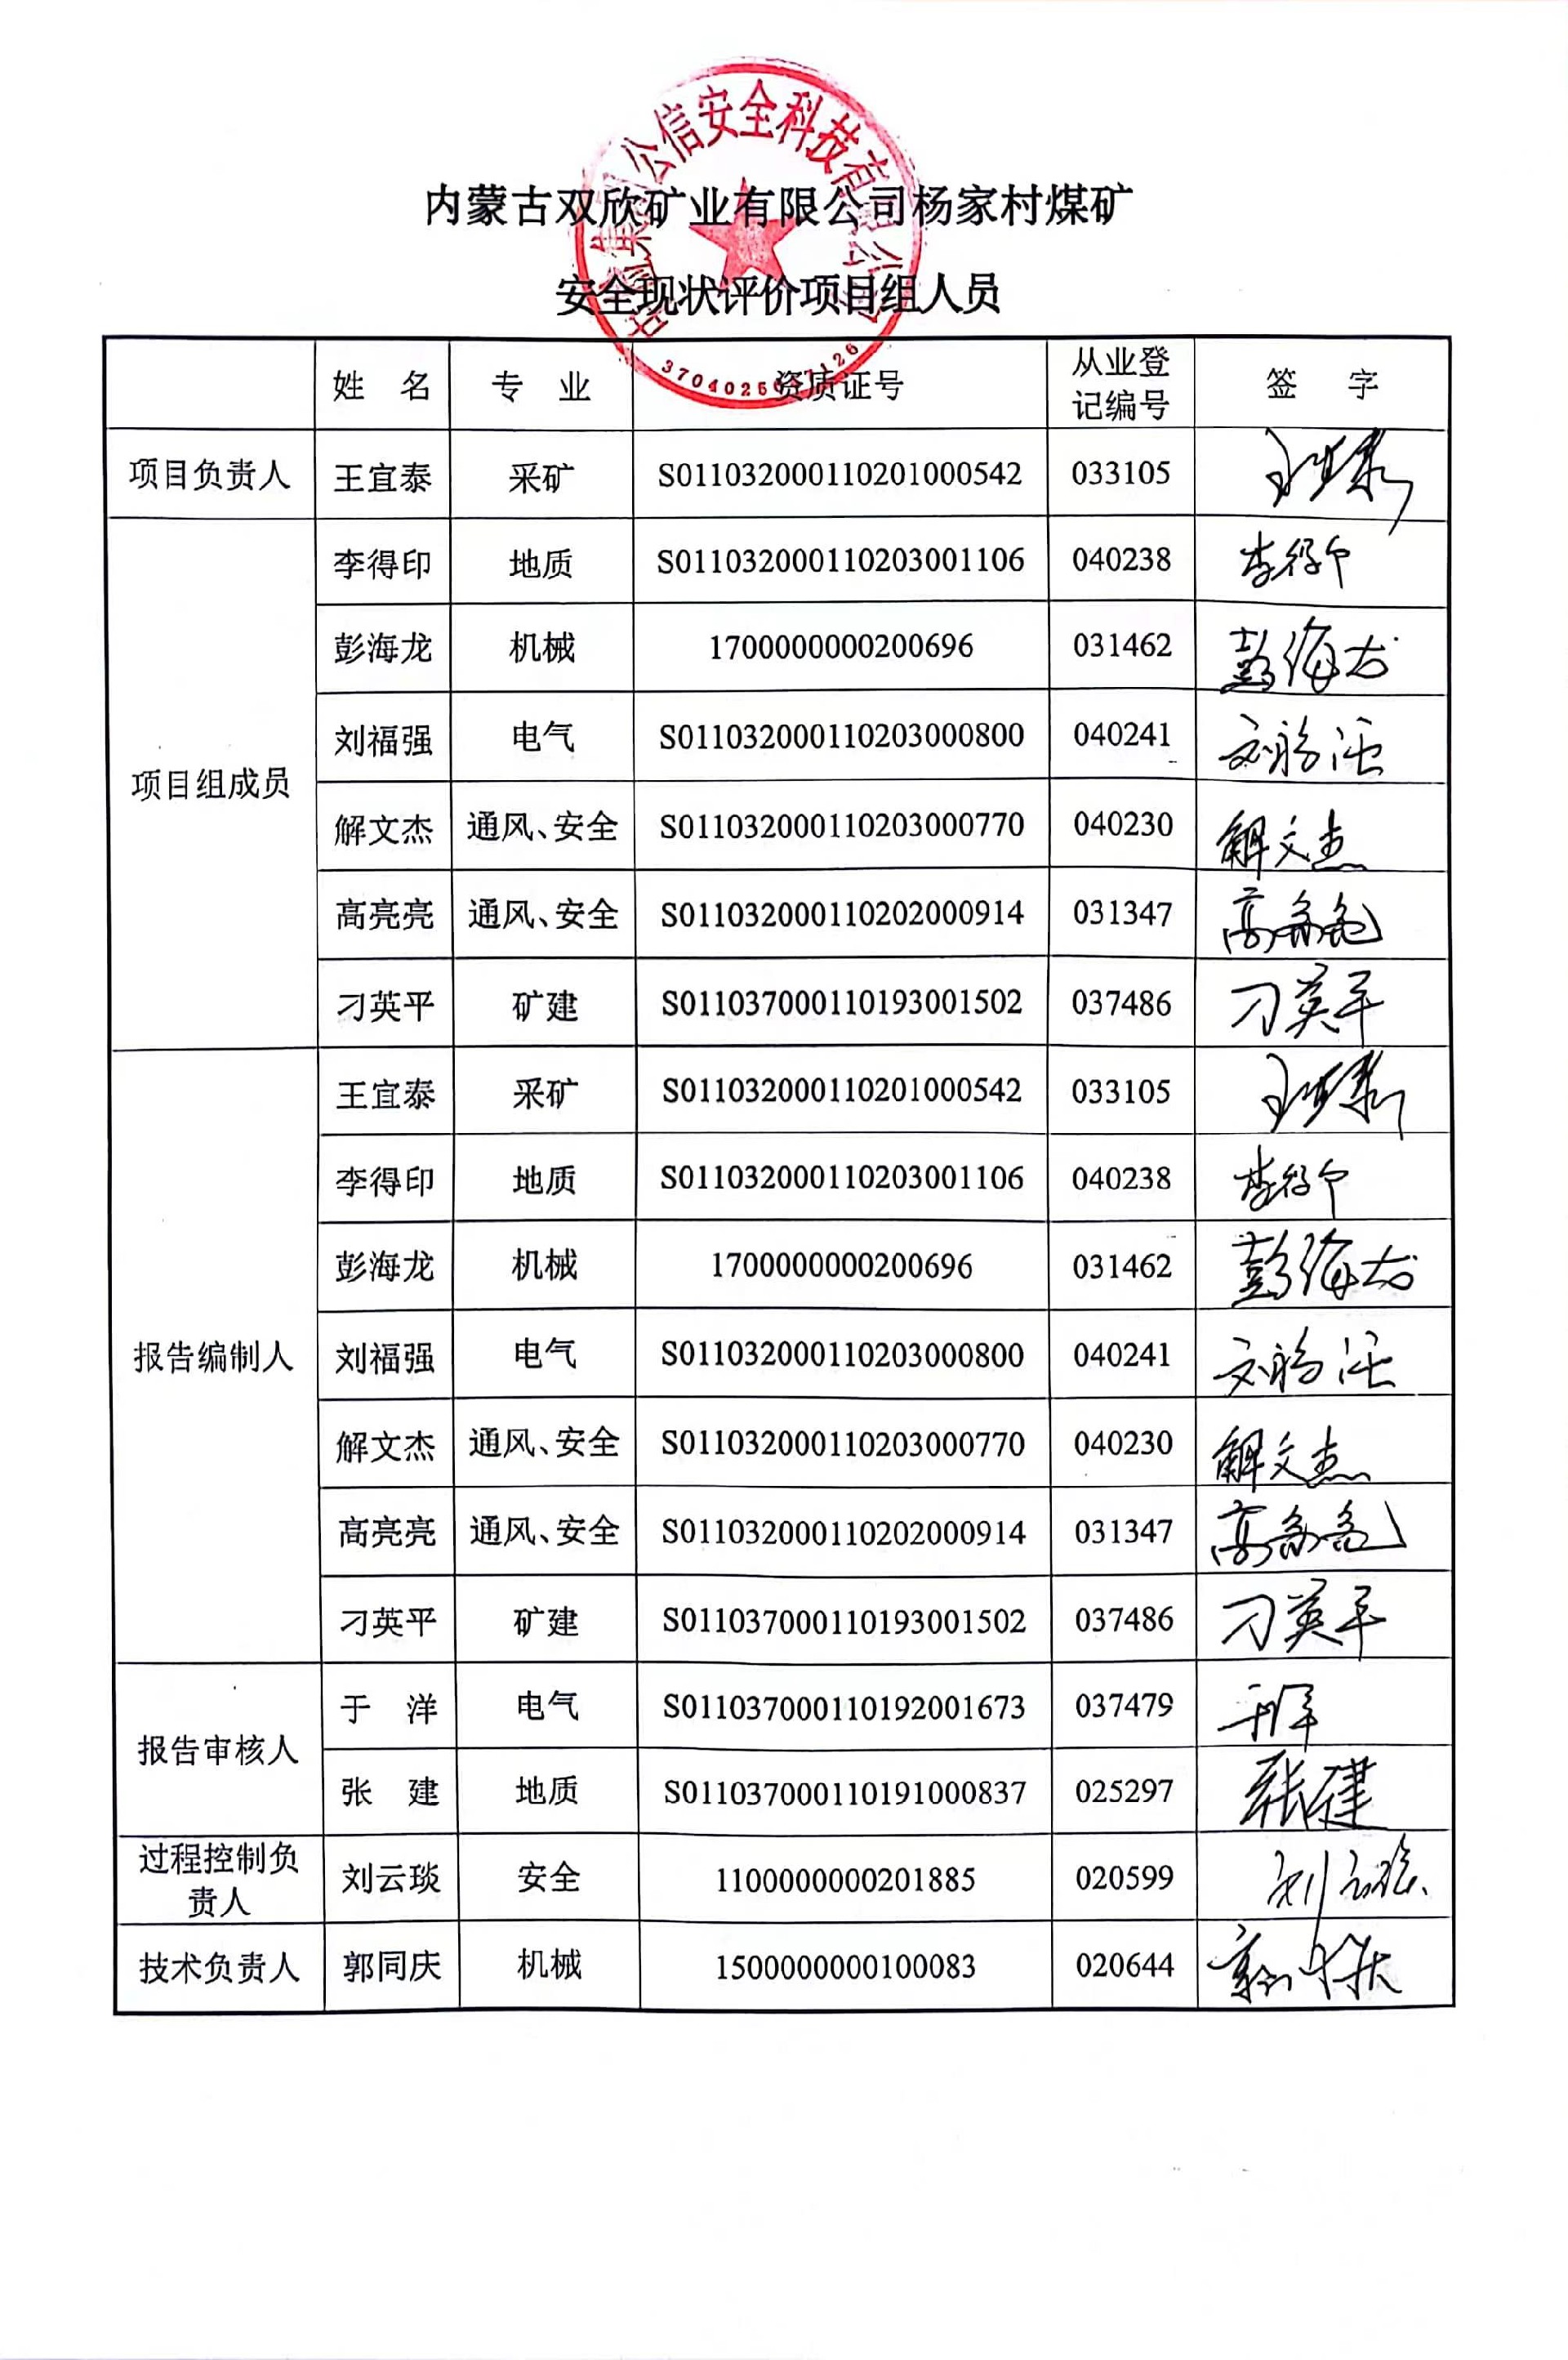 内蒙古双欣矿业有限公司杨家村煤矿
安全现状评价项目组人员
公信安全科技有限公
姓 名 专 业 资质证号 从业登记编号 签 字
项目负责人 王宜泰 采矿 S011032000110201000542 033105 王宜泰
项目组成员 李得印 地质 S011032000110203001106 040238 李得印
彭海龙 机械 1700000000200696 031462 彭海龙
刘福强 电气 S011032000110203000800 040241 刘福强
解文杰 通风、安全 S011032000110203000770 040230 解文杰
高亮亮 通风、安全 S011032000110202000914 031347 高亮亮
刁英平 矿建 S011037000110193001502 037486 刁英平
报告编制人 王宜泰 采矿 S011032000110201000542 033105 王宜泰
李得印 地质 S011032000110203001106 040238 李得印
彭海龙 机械 1700000000200696 031462 彭海龙
刘福强 电气 S011032000110203000800 040241 刘福强
解文杰 通风、安全 S011032000110203000770 040230 解文杰
高亮亮 通风、安全 S011032000110202000914 031347 高亮亮
刁英平 矿建 S011037000110193001502 037486 刁英平
报告审核人 于 洋 电气 S011037000110192001673 037479 于洋
张 建 地质 S011037000110191000837 025297 张建
过程控制负责人 刘云琰 安全 1100000000201885 020599 刘云琰
技术负责人 郭同庆 机械 1500000000100083 020644 郭同庆